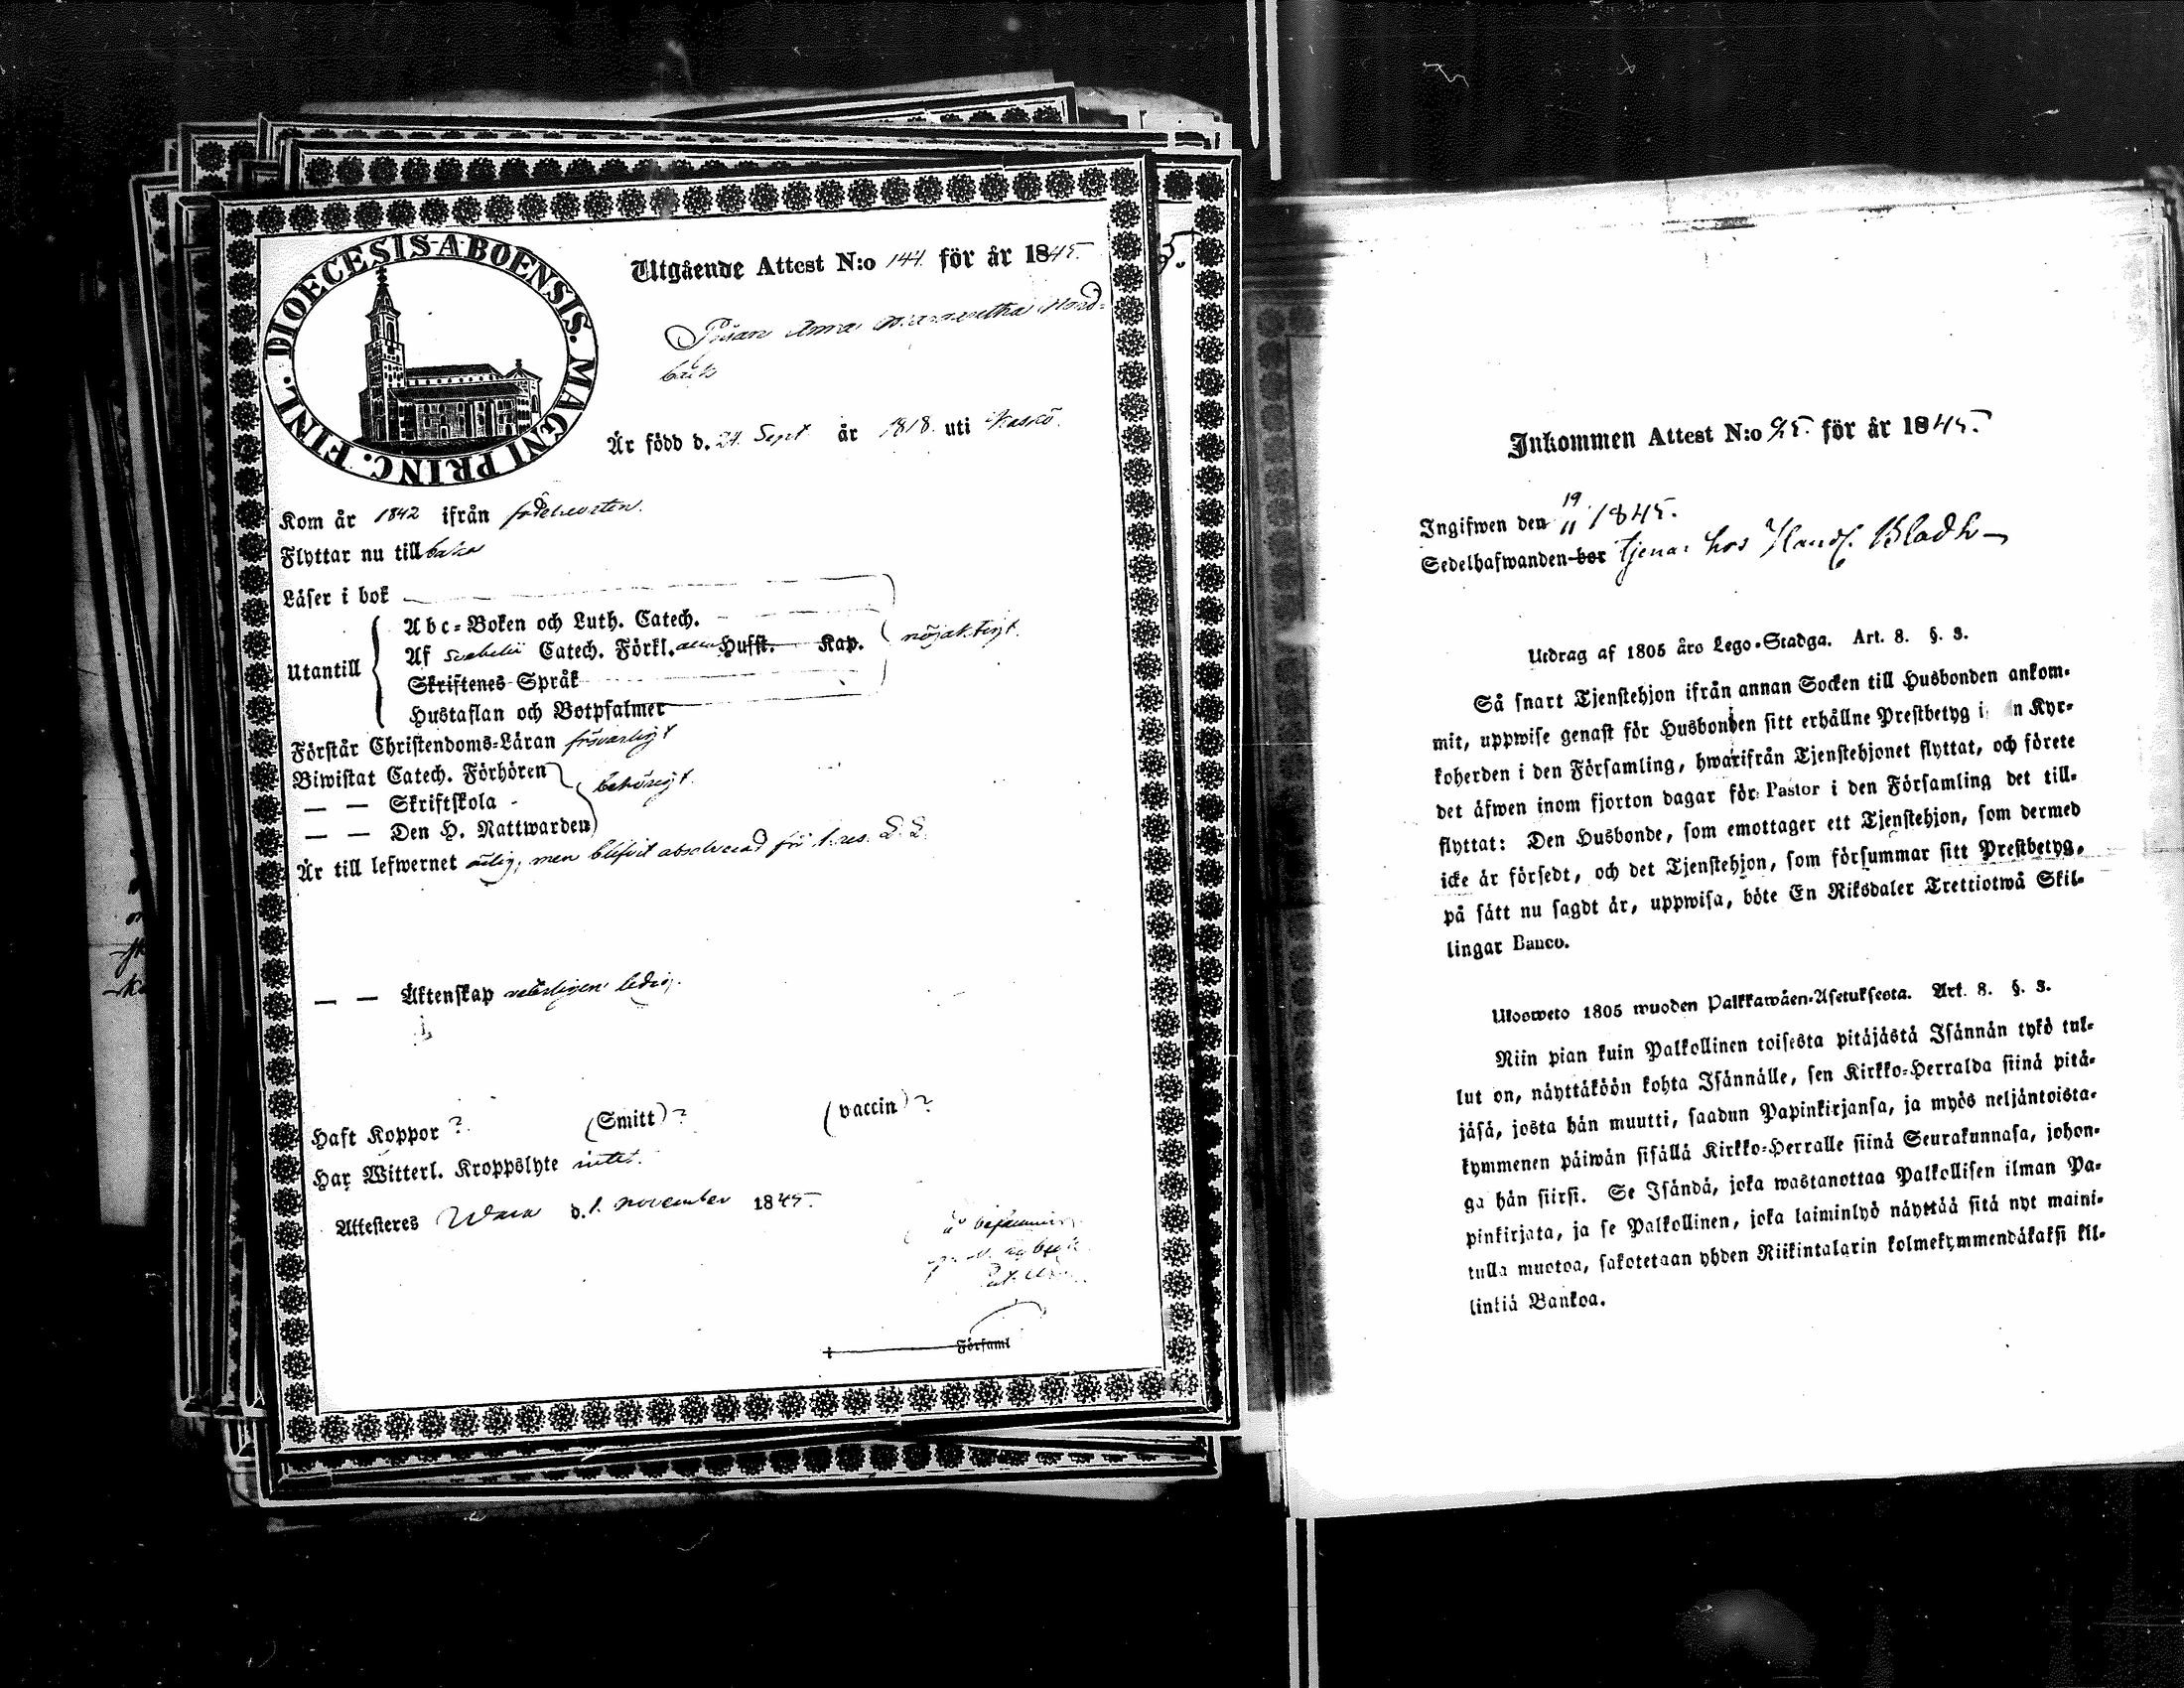 DIOECESIS ABOENSIS. MAGNI PRINC. FINL.
Utgående Attest N:o 144. för år 1845.
Pigan Anna Margaretha Nord-
Är född d. 24. Sept. år 1818. uti Kaskö.
Kom år 1842 ifrån födelseorten.
Flyttar nu till baka
Läser i bok
Utantill
Abc-Boken och Luth. Catech.
Af Svebelii Catech. Förkl. Husst. Kap.
nöjaktigt.
Skriftenes Språk
Hustaflan och Botpsalmer
Förstår Christendoms-Läran försvarligt
Biwistat Catech. Förhören
— — Skriftskola
behörigt.
— — Den H. Nattwarden
Är till lefwernet ärlig, men blifvit absolverad för 1. res. L. L.
— — Äktenskap veterligen ledig.
Haft Koppor ? (Smitt) ? (vaccin) ?
Har Witterl. Kroppslyte intet.
Attesteres Wasa d. 1. november 1845.
Församl
Inkommen Attest N:o 95. för år 1845.
Ingifwen den 19/11 1845.
Sedelhafwanden bor tjenar hos Handl. Bladh —
Utdrag af 1805 års Lego-Stadga. Art. 8. §. 3.
Så snart Tjenstehjon ifrån annan Socken till Husbonden ankom-
mit, uppwise genast för Husbonden sitt erhållne Prestbetyg i n Kyr-
koherden i den Församling, hwarifrån Tjenstehjonet flyttat, och förete
det äfwen inom fjorton dagar för Pastor i den Församling det till-
flyttat: Den Husbonde, som emottager ett Tjenstehjon, som dermed
icke är försedt, och det Tjenstehjon, som försummar sitt Prestbetyg,
på sätt nu sagdt är, uppwisa, böte En Riksdaler Trettiotwå Skil-
lingar Banco.
Ulosweto 1805 wuoden Palkkawäen-Asetuksesta. Art. 8. §. 3.
Niin pian kuin Palkollinen toisesta pitäjästä Isännän tykö tul-
lut on, näyttäköön kohta Isännälle, sen Kirkko-Herralda siinä pitä-
jäsä, josta hän muutti, saadun Papinkirjansa, ja myös neljäntoista-
kymmenen päiwän sisällä Kirkko-Herralle siinä Seurakunnasa, johon-
ga hän siirsi. Se Isändä, joka wastanottaa Palkollisen ilman Pa-
pinkirjata, ja se Palkollinen, joka laiminlyö näyttää sitä nyt maini-
tulla muotoa, sakotetaan yhden Riikintalarin kolmekymmendäkaksi kil-
linkiä Bankoa.